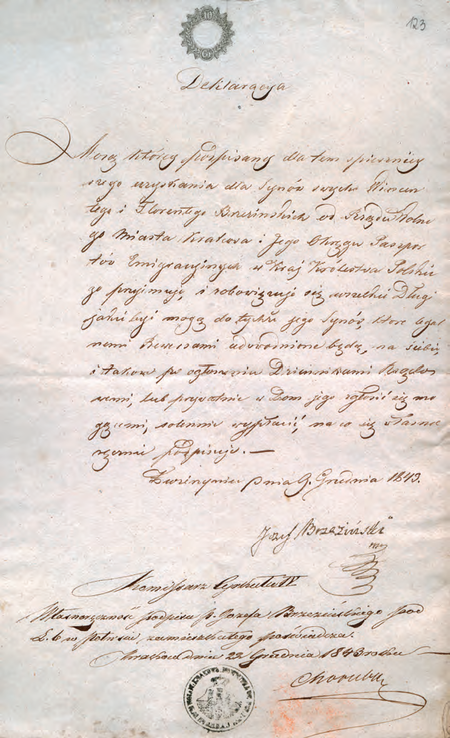 123
10
Deklaracya
Mocą której podpisany dla tem spieszniey
szego uzyskania dla Synów swych Wincen
tego i Florentego Brzezinskich od Rządu Wolne
go Miasta Krakowa i Jego Okręgu Paszpor
tów Emigracyinych w Kraj Królestwa Polskie
go przyjmuje i zobowięzuje się wszelkie Długi
jakie być mogą do tychże jego Synów, które legal
nemi Rewersami udwodnione będą, na siebie
i takowe po ogłoszeniu Dziennikami Rządow
emi, lub prywatnie w Dom jego zgłosić się mo
gącemi, solennie wypłacić, na co się własno
ręcznie podpisuje.—
dnia 9. Grudnia 1843.
Józef Brzeziński
Kommissarz Cyrkułu IV
Własnoręczność podpisu P. Józefa Brzezińskiego pod
L. 6 w zamieszkałego poświadcza.
Kraków dnia 22 Grudnia 1843 roku